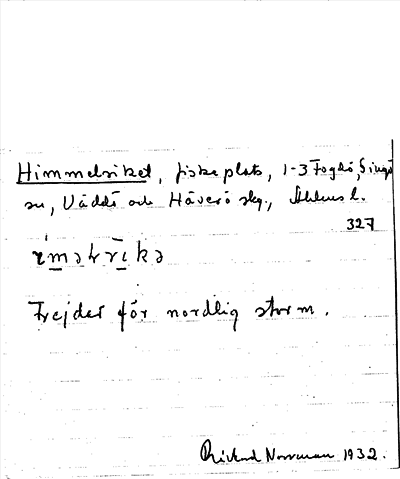 Himmelriket, fiskeplats, 1-3 Fogdö, Singö
sn, Väddö och Häverö skg., Sthlms l.
327
Frejdet för nordlig storm.
Rickard Norrman 1932.